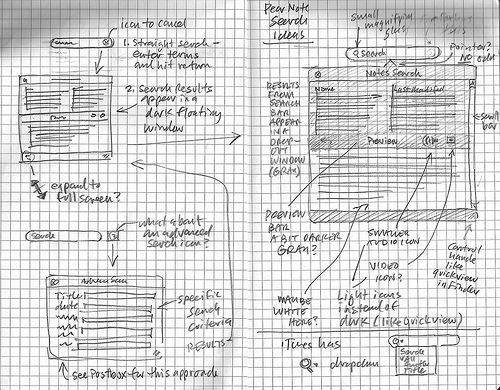 icon to cancel
1. Straight search -
enter terms
and hit return
2. Search Results
appear in a
dark floating
window
expand to
full screen?
Search
what about
an advanced
search icon?
Advanced Search
Title
date
specific
search
criteria
RESULTS
see Postbox for this approach
Pear Note
Search
Ideas
small magnifying
glass
Search
Pointer?
No
Notes Search
Name
Last Modified
RESULTS
FROM
SEARCH
BAR
APPEAR
IN A
DROP-
OUT
WINDOW
(GRAY)
scroll
bar
Preview
PREVIEW
BAR
A BIT DARKER
GRAY?
SMALLER
AUDIO ICON
VIDEO
ICON?
Control
Handle
like
quickview
in Finder
MAYBE
WHITE
HERE?
Light icons
instead of
dark (like quickview)
iTunes has
dropdown
Search
All
Title